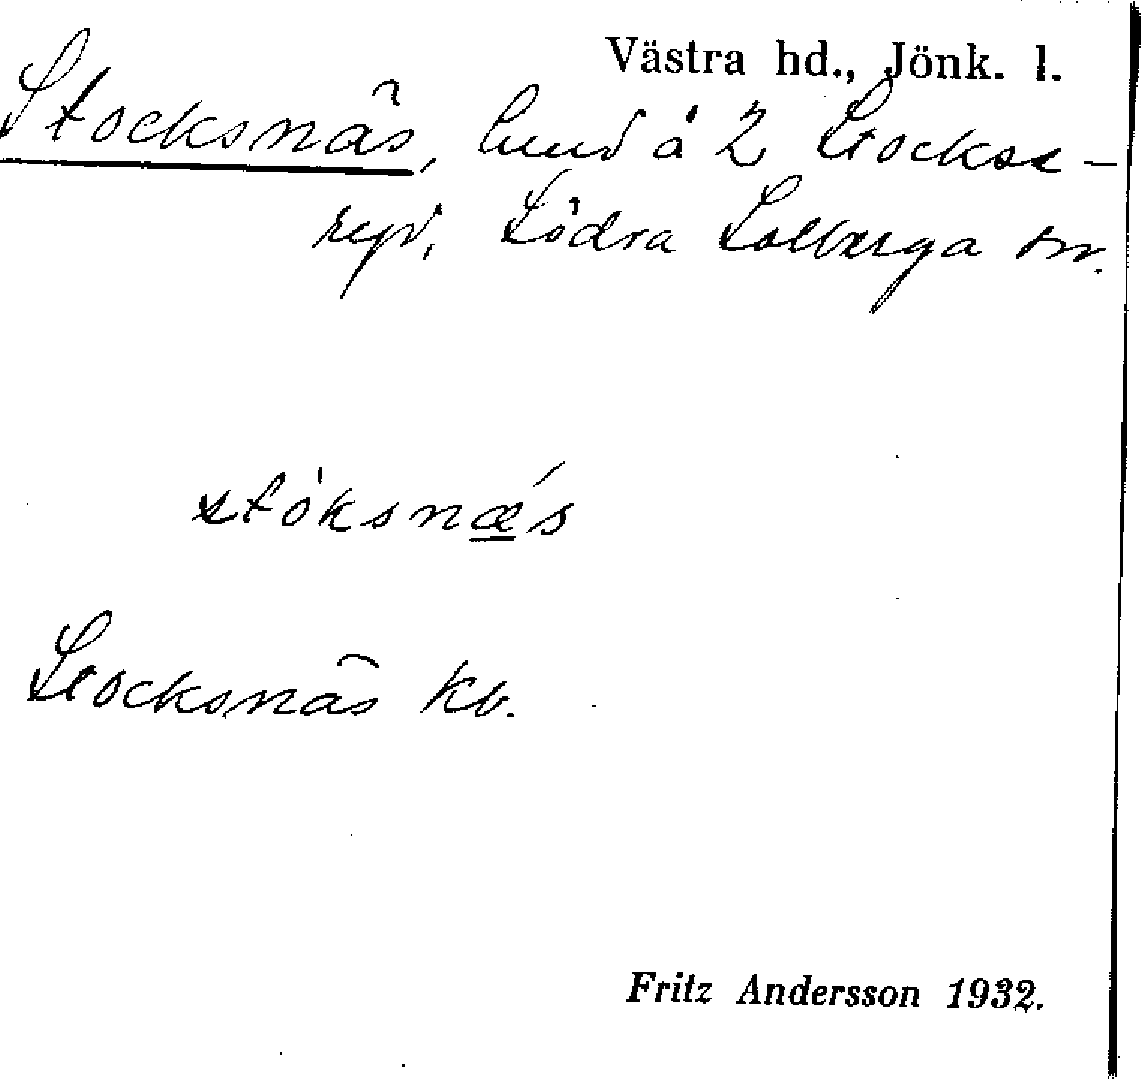 Västra hd., Jönk. l.
Stocksnäs, lund å 2 Stockse-
ryd, Södra Solberga sn.
stóksnæ´s
Stocksnäs kb.
Fritz Andersson 1932.